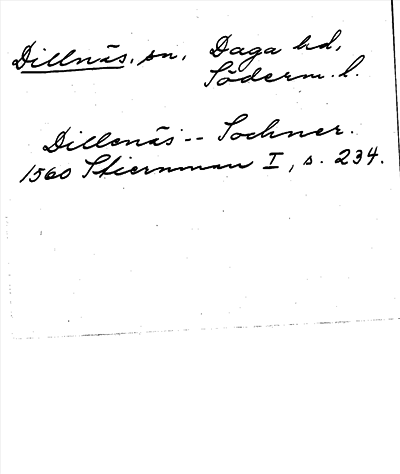 Dillnäs, sn, Daga hd,
Söderm. l.
Dillenäs -- Sochner.
1560 Stiernman I, s. 234.